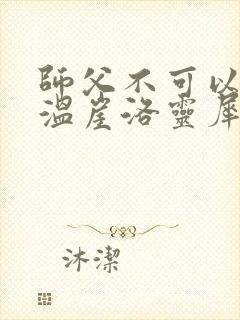 師父不可以
溫崖洛靈犀
沐潔